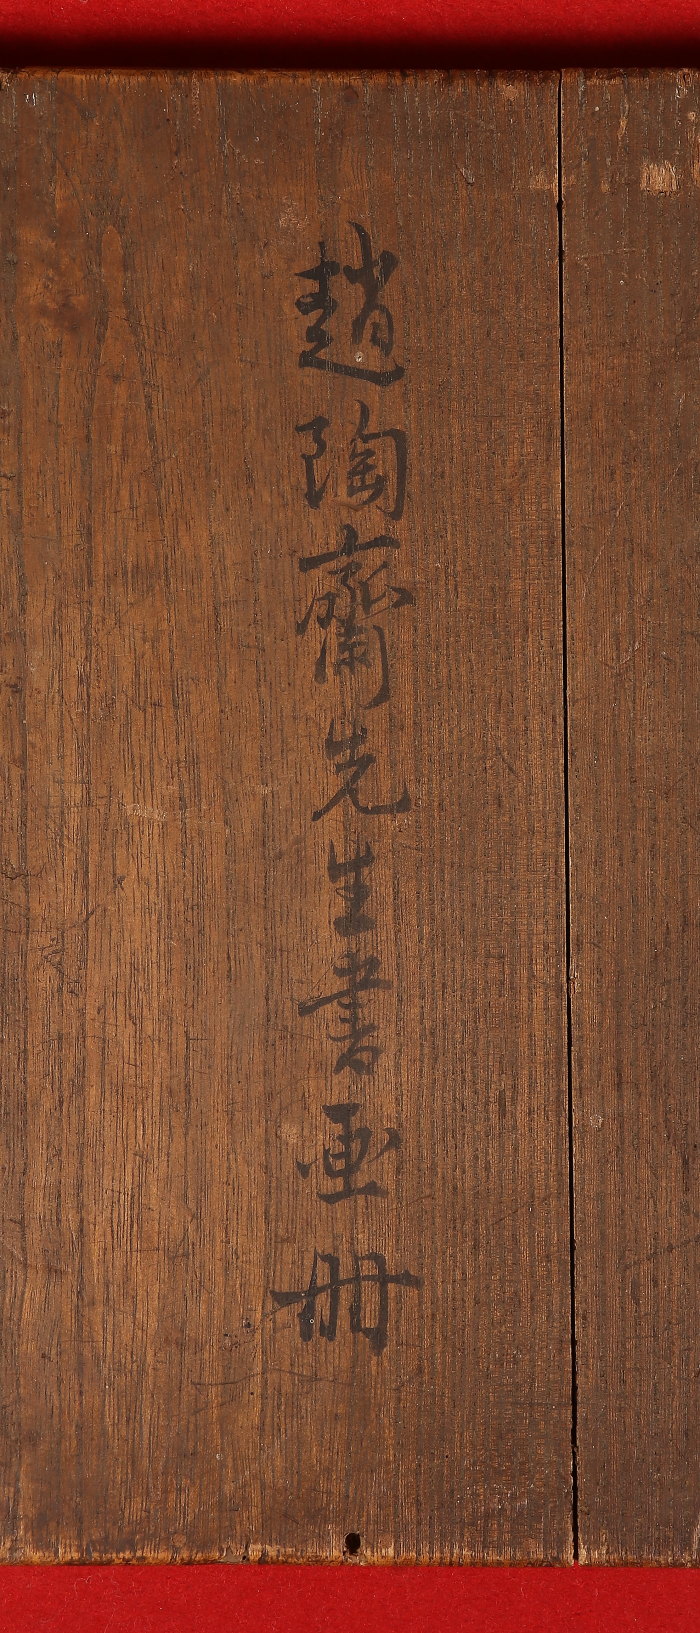 趙陶齋先生書画册